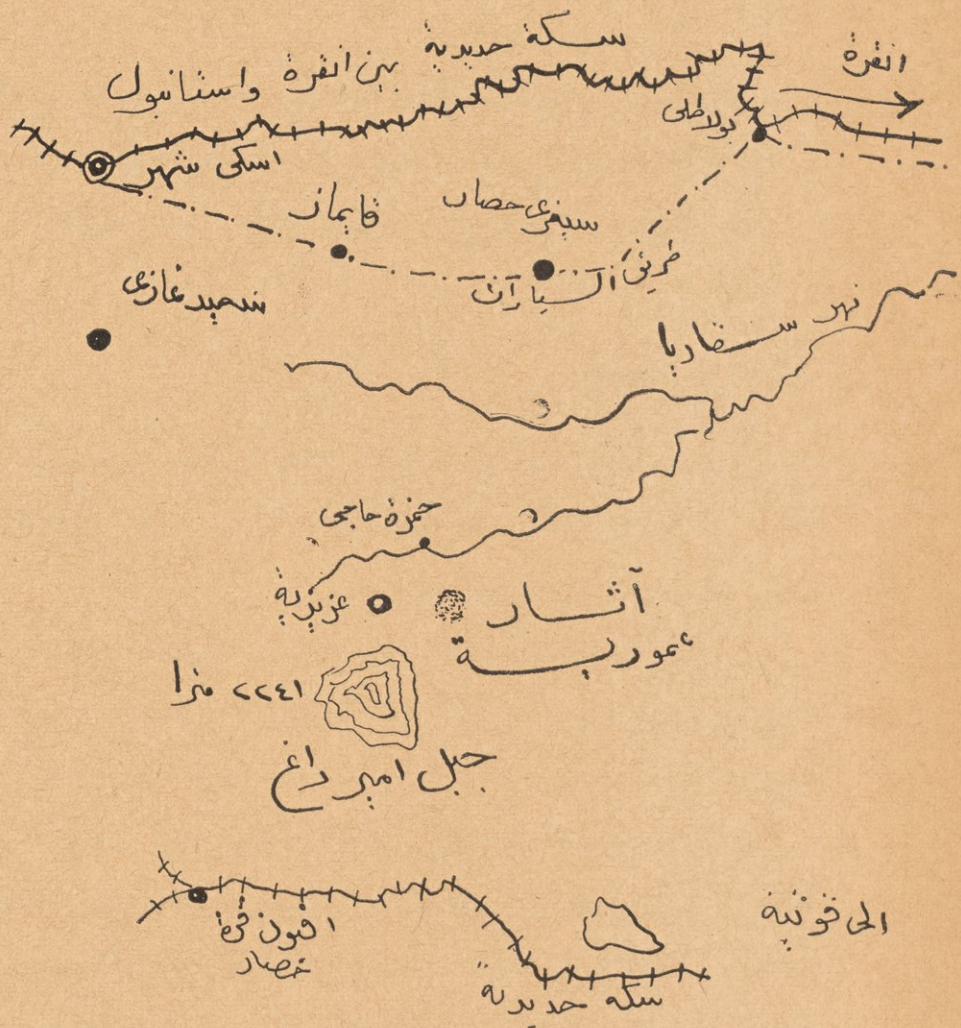 سكة حديدية بين انقرة واستانبول
انقرة
بولاطلى
اسكى شهر
قايماز
سيفرى حصار
طريق السيارات
سيد غازى
نهر سقاريا
حمزة حاجى
عزيزية
آثار
عمورية
٢٢٤١ مترا
جبل امير داغ
افيون قرة
حصار
سكة حديدية
الى قونية